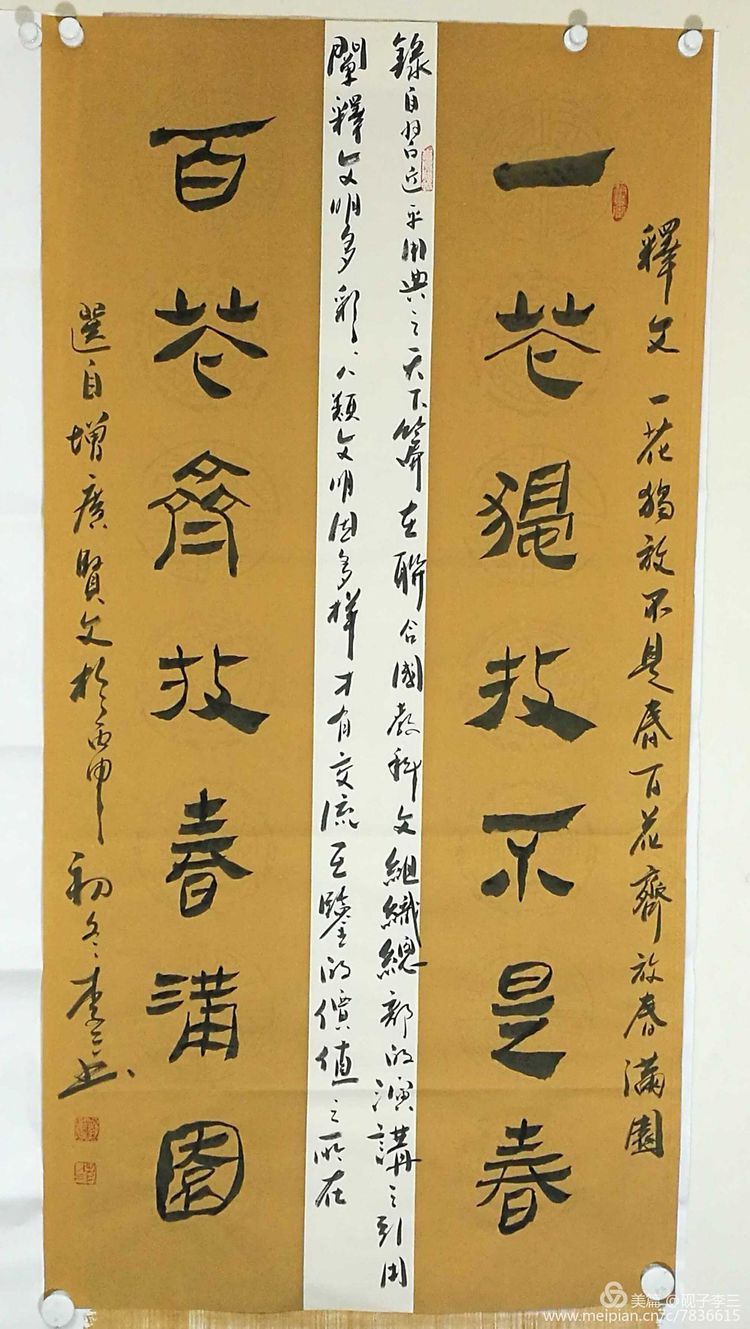 釋文 一花獨放不是春百花齊放春滿園
一花獨放不是春
錄自習近平用典之天下篇在聯合國教科文組織總部的演講之引用
闡釋文明多彩人類文明因多樣才有交流互鑒的價值之所在
百花齊放春滿園
選自增廣賢文於丙申初冬李三書
美篇 @砚子李三
www.meipian.cn/c/7836615